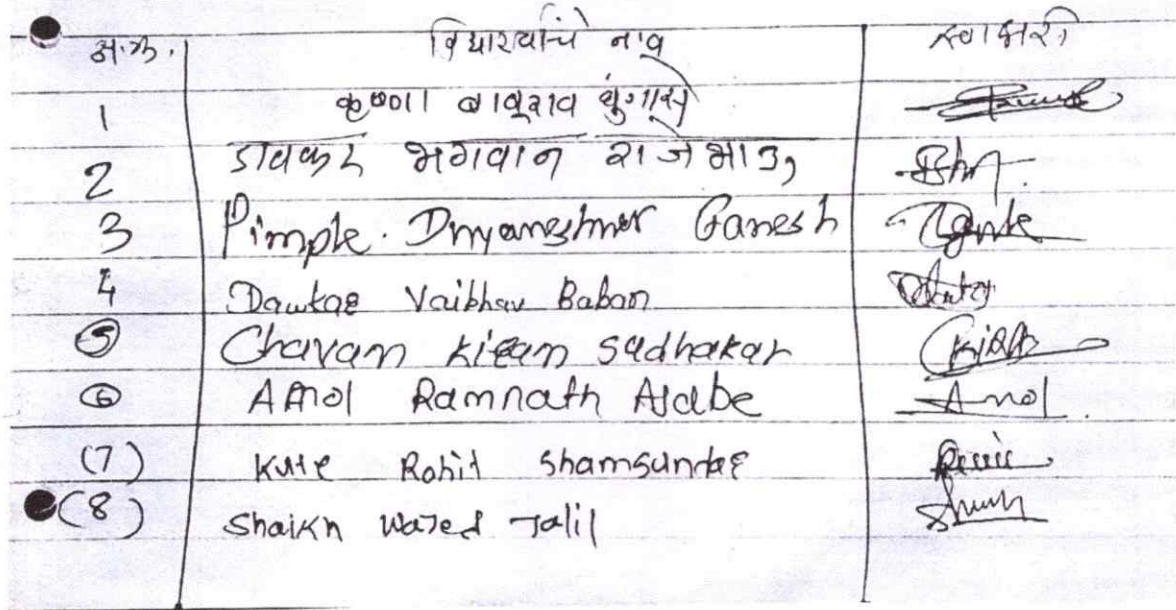 अ.क्र. विद्यार्थ्याचे नाव स्वाक्षरी
1 कृष्णा बाबूराव
2 डावकर भगवान राजेभाऊ
3 Pimple. Dnyaneshwer Ganesh
4 Dawkar Vaibhav Baban
5 Chavam kiram sudhakar
6 Amol Ramnath Ajabe Amol
(7) Kute Rohit shamsundar
(8) Shaikh Wajed Jalil